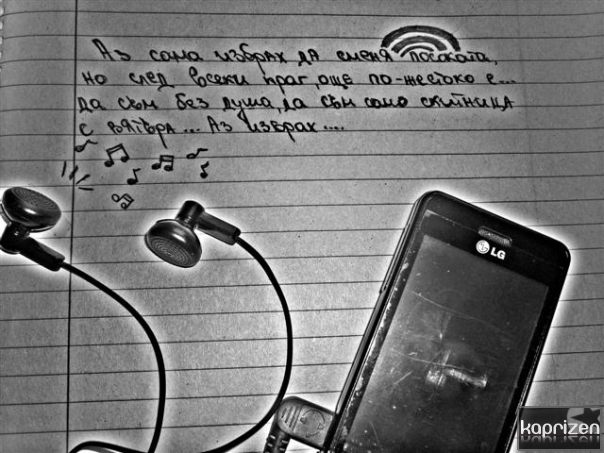 Аз сама избрах да сменя посоката,
но след всеки праг, още по-жестоко е...
да съм без душа, да съм само скитница
с вятъра... Аз избрах....
LG
kaprizen